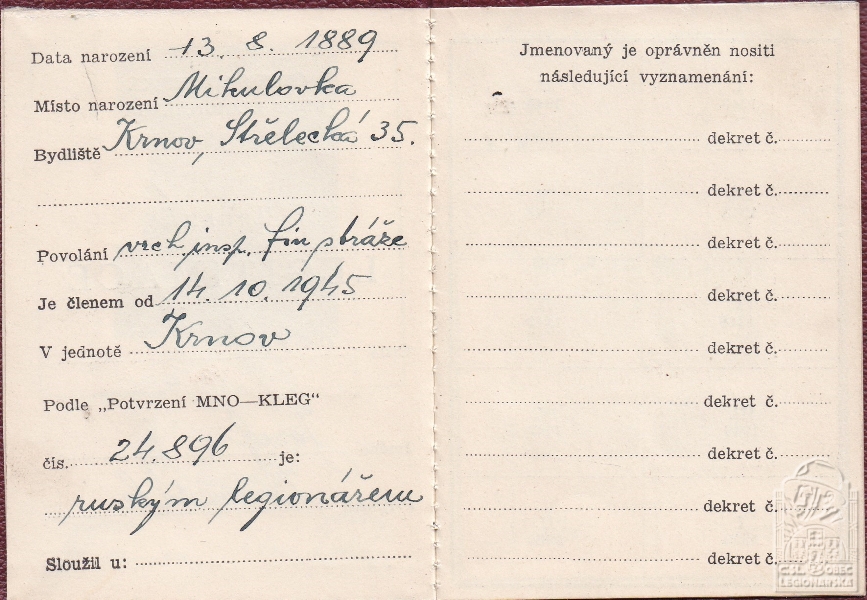 Data narození 13. 8. 1889
Místo narození Mikulovka
Bydliště Krnov, Střelecká 35.
Povolání vrch. insp. fin stráže
Je členem od 14. 10. 1945
V jednotě Krnov
Podle „Potvrzení MNO—KLEG“
čís. 24.896 je:
ruským legionářem
Sloužil u:
Jmenovaný je oprávněn nositi
následující vyznamenání:
dekret č.
dekret č.
dekret č.
dekret č.
dekret č.
dekret č.
dekret č.
dekret č.
dekret č.
ČSL. OBEC
LEGIONÁŘSKÁ